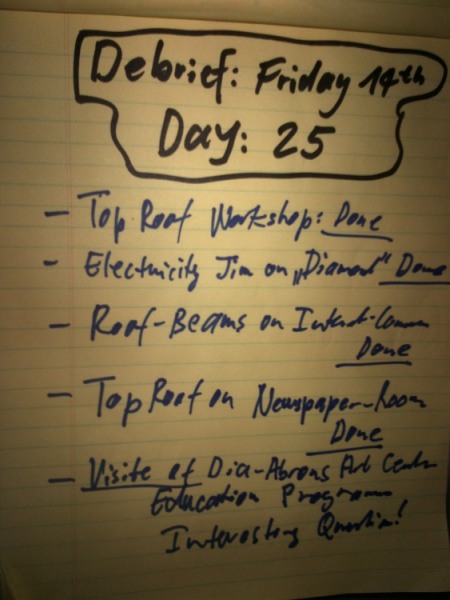 Debrief: Friday 14th
Day: 25
- Top Roof Workshop: Done
- Electricity Jim on „Diamond" Done
- Roof-Beams on
Done
- Top Roof on Newspaper-Room
Done
- Visite of Dia-Abrons Art Center
Education Programm
Interesting Question!